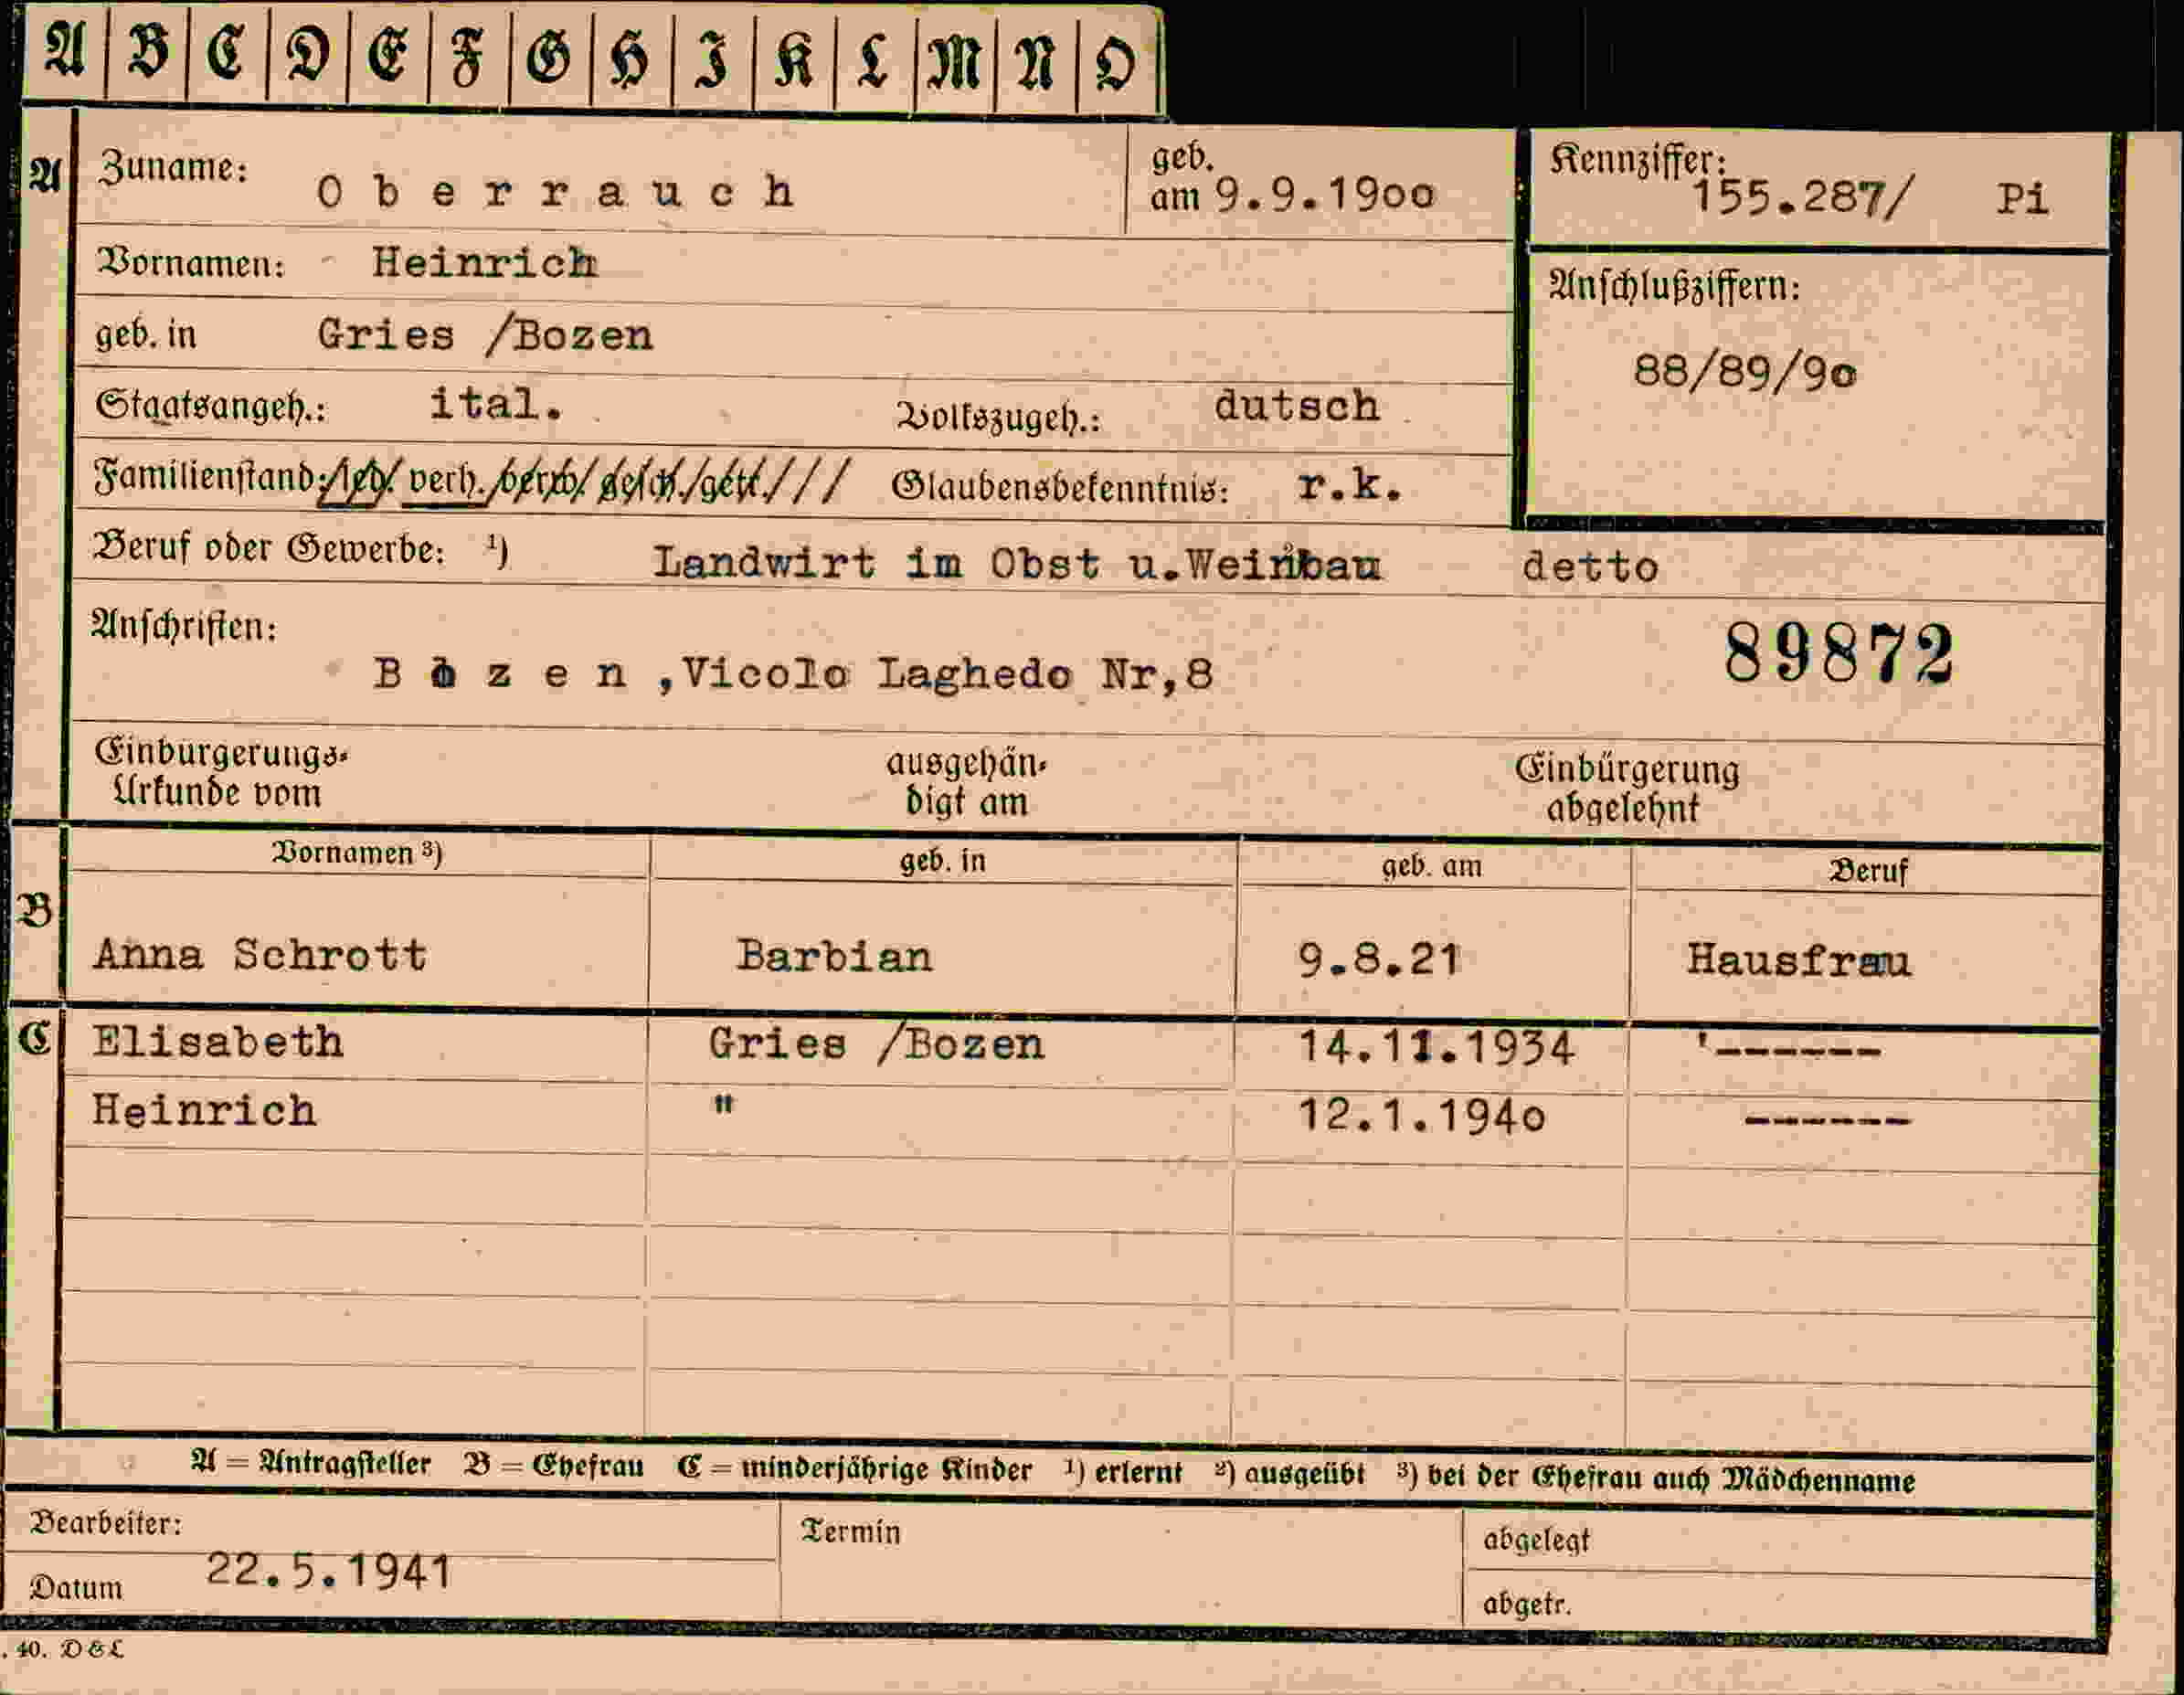 A B C D E F G H I K L M N O
A Zuname: Oberrauch geb. am 9.9.19oo Kennziffer: 155.287/ Pi
Vornamen: Heinrich
Anschlußziffern:
geb. in Gries /Bozen
88/89/9o
Staatsangeh.: ital. Volkszugeh.: dutsch
Familienstand: led. verh. verw. gesch. getr. Glaubensbekenntnis: r.k.
Beruf oder Gewerbe: ¹) Landwirt im Obst u.Weinbau detto
Anschriften:
89872
Bozen,Vicolo Laghedo Nr,8
Einbürgerungs-
Urkunde vom
ausgehän-
digt am
Einbürgerung
abgelehnt
Vornamen ³) geb. in geb. am Beruf
B
Anna Schrott Barbian 9.8.21 Hausfrau
C Elisabeth Gries /Bozen 14.11.1934 '------
Heinrich " 12.1.194o ------
A = Antragsteller B = Ehefrau C = minderjährige Kinder ¹) erlernt ²) ausgeübt ³) bei der Ehefrau auch Mädchenname
Bearbeiter: Termin abgelegt
Datum 22.5.1941
abgetr.
. 40. D&L